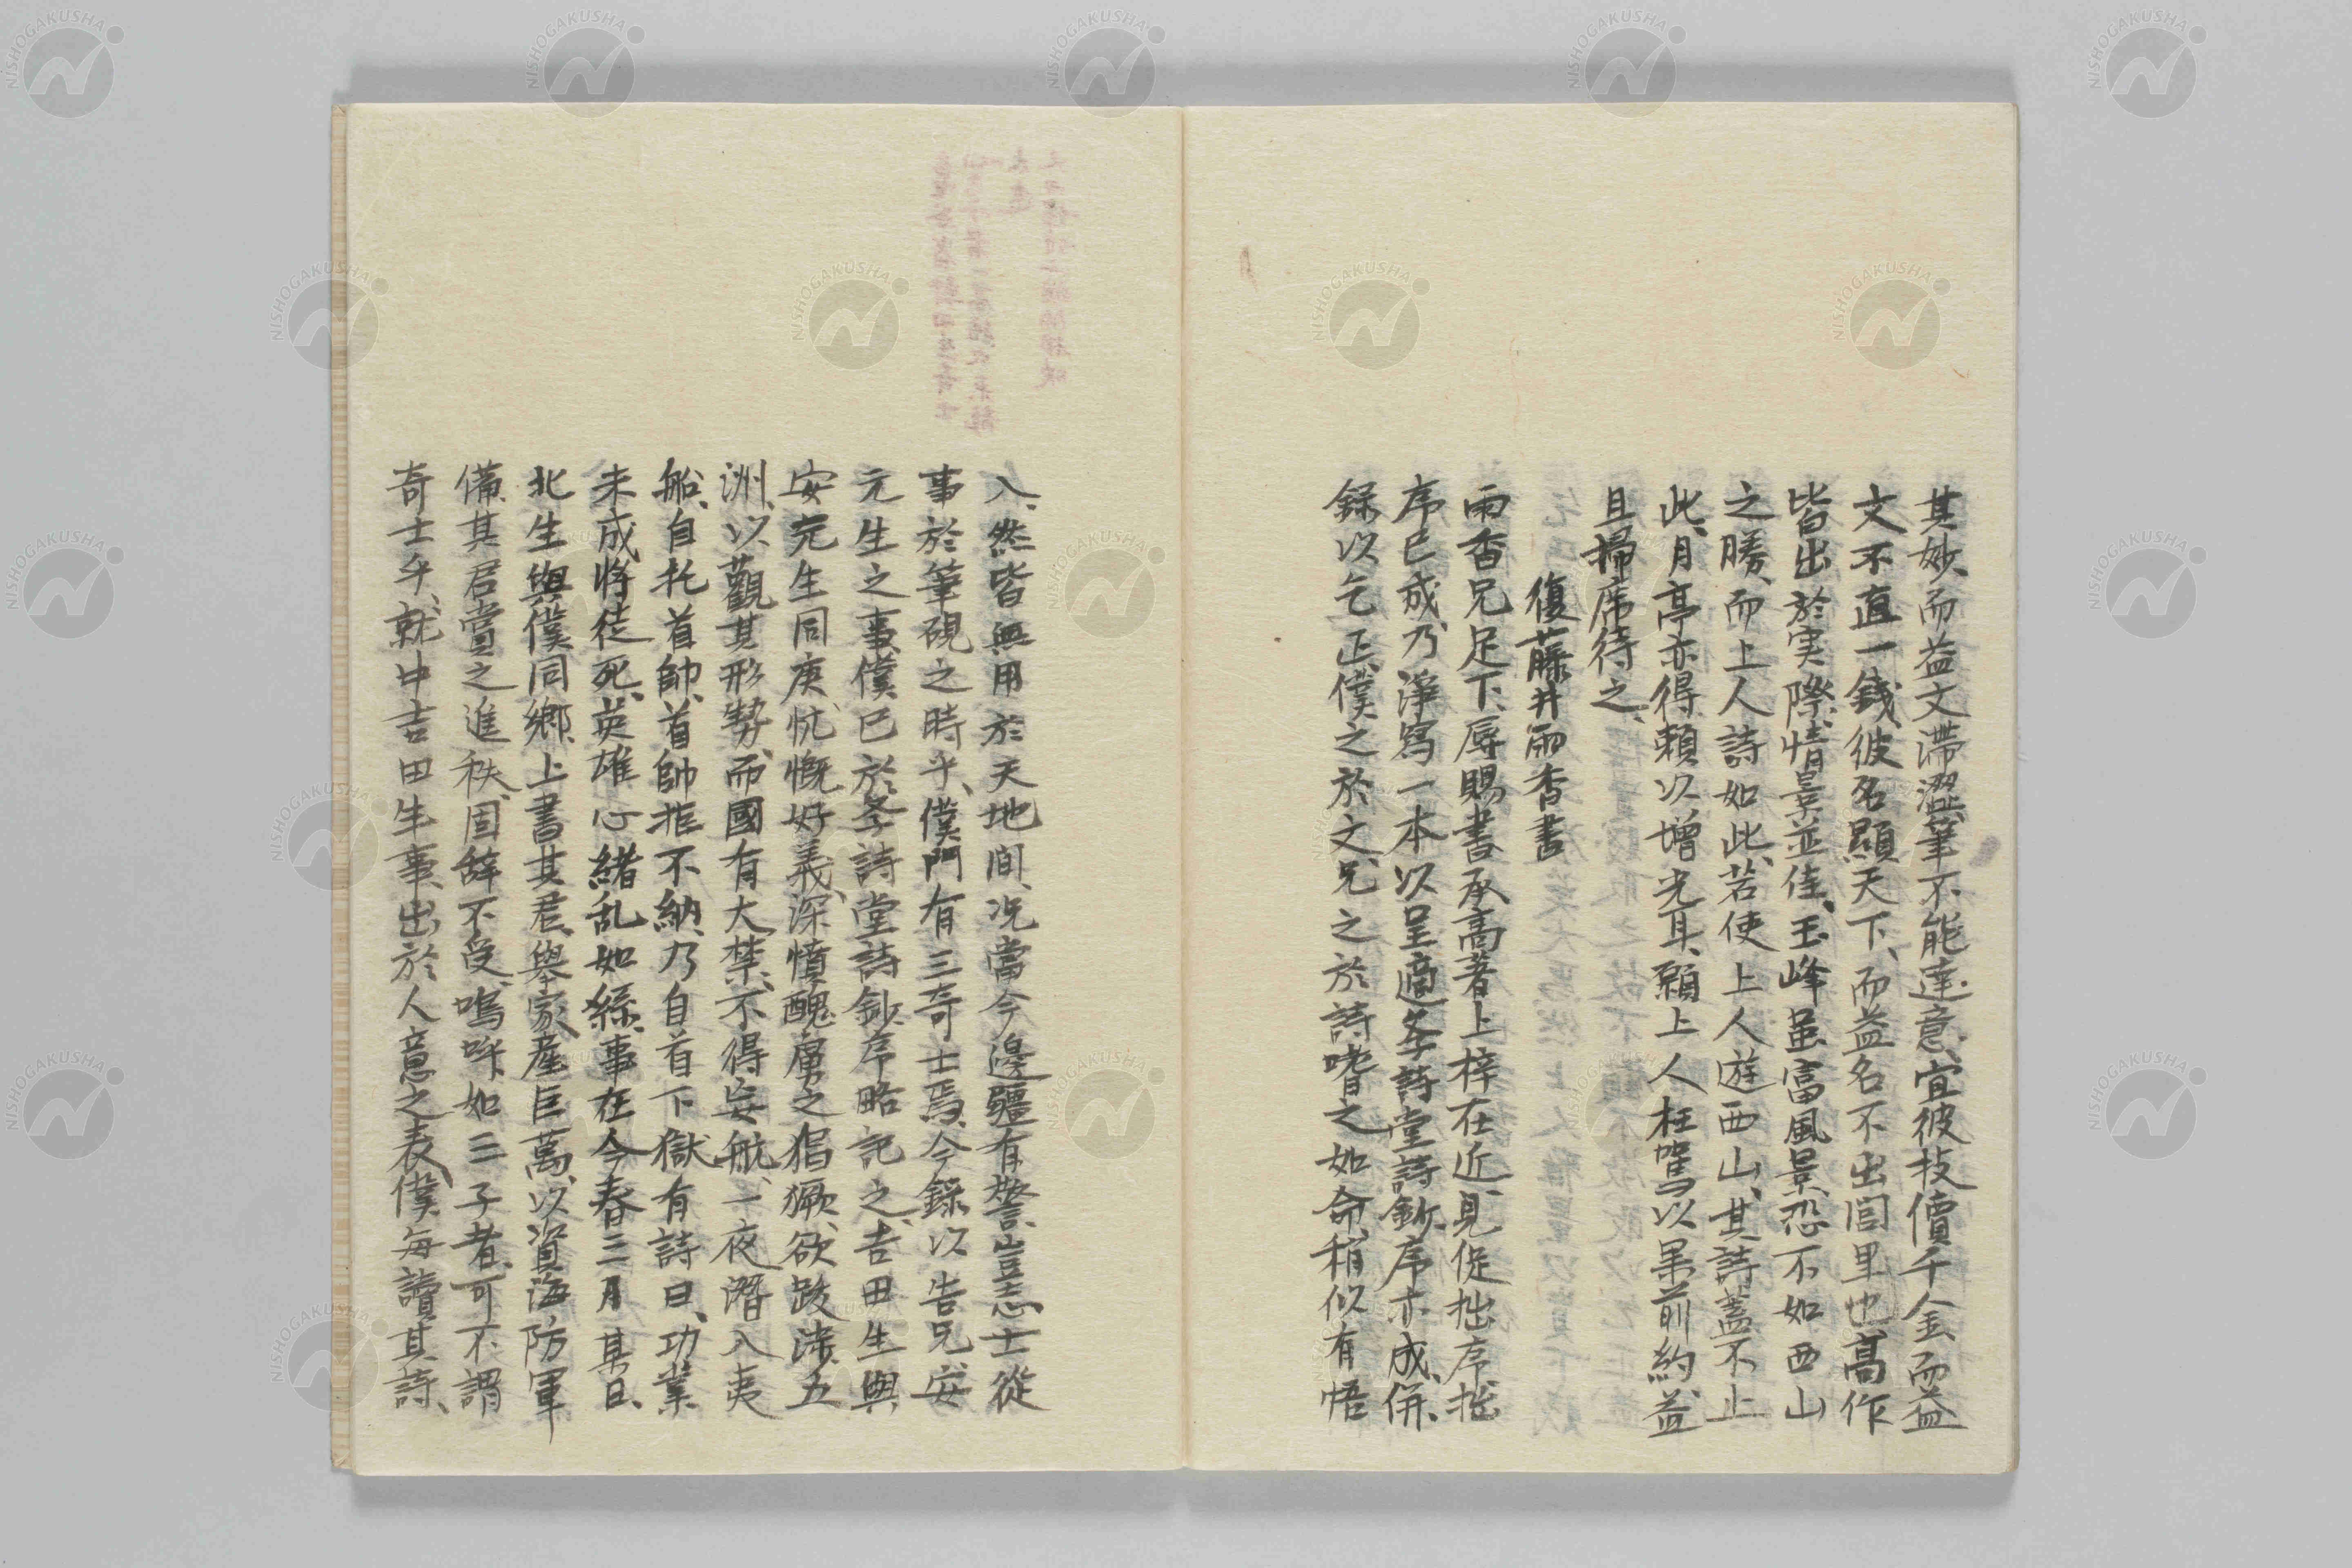 其妙、而益文滞澀、筆不能達意、宜彼技價千金、而益
文不直一錢、彼名顯天下、而益名不出閭里也、高作
皆出於実際、情景並佳、玉峰虽富風景、恐不如西山
之勝、而上人詩如此、若使上人遊西山、其詩蓋不止
此、月亭亦得頼以増光耳、願上人枉駕、以果前約、益
且掃席待之、
復藤井雨香書
雨香兄足下、辱賜書、承高著上梓在近、見促拙序、拙
序已成、乃淨寫一本以呈、適冬詩堂詩鈔序亦成、併
録以乞正、僕之於文、兄之於詩、嗜之如命、稍似有悟
入、然皆無用於天地間、况當今邊疆有警、豈志士從
事於筆硯之時乎、僕門有三奇士焉、今録以告兄、安
元生之事、僕已於冬詩堂詩鈔序略記之、吉田生與
安元生同庚、忼慨好義、深憤醜虜之猖獗、欲跋渉五
洲、以觀其形勢、而國有大禁、不得妄航、一夜潛入夷
船、自托首帥、首帥拒不納、乃自首下獄、有詩曰、功業
未成將徒死、英雄心緒乱如絲、事在今春三月某日、
北生與僕同郷、上書其君、舉家産巨萬、以資海防軍
備、其君賞之進秩、固辞不受、嗚呼、如三子者、可不謂
奇士乎、就中吉田生事、出於人意之表、僕毎讀其詩、